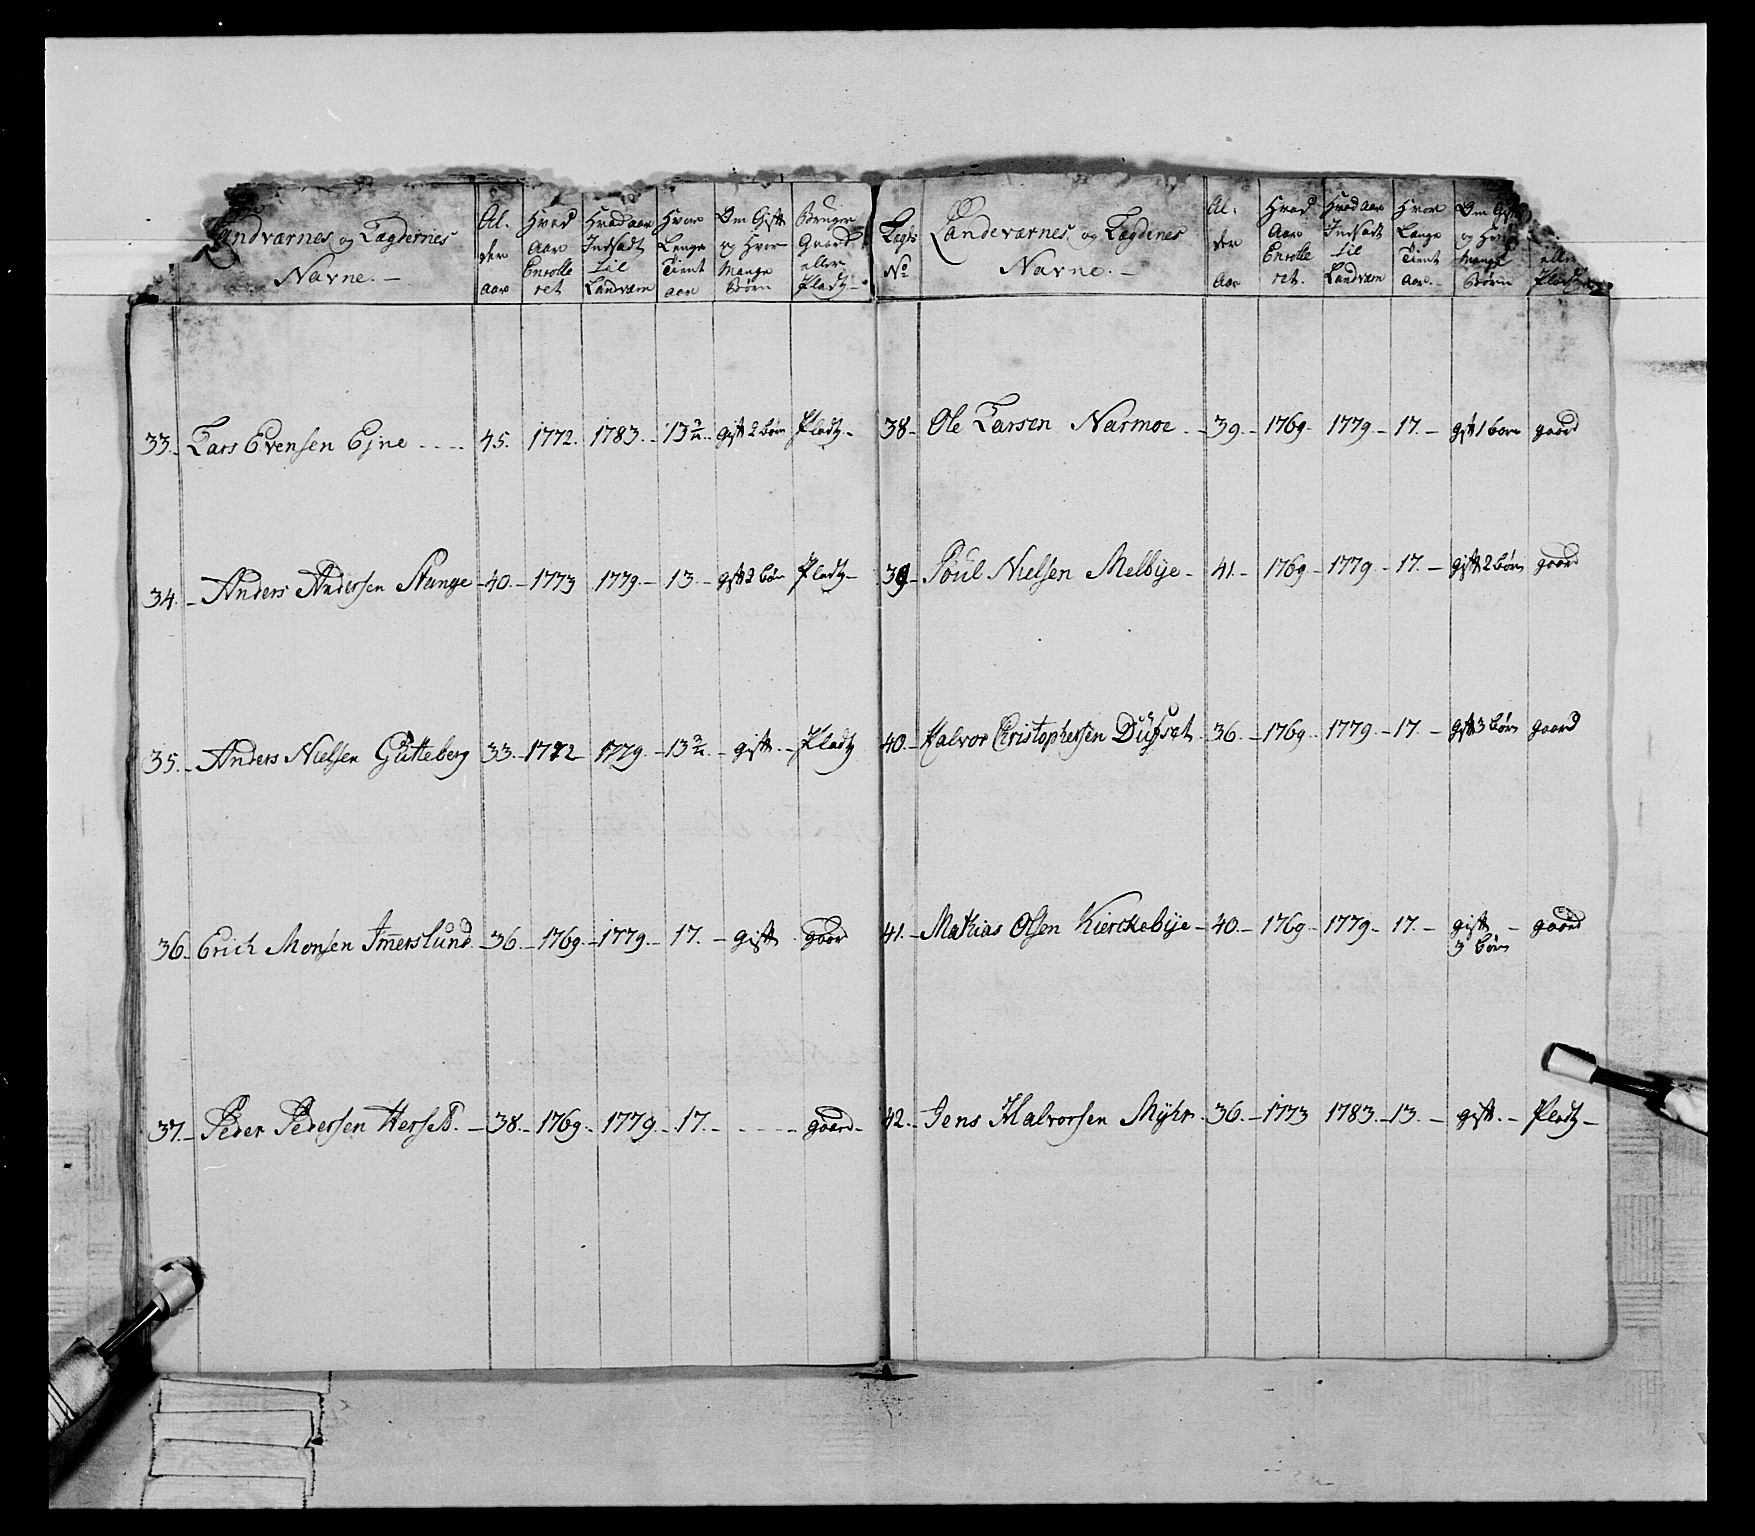 Landværnes og Lægdernes Navne. — | Al. der aar | Hvad Aar Enrolle ret | Hvad aar Indsadt til Landværn | Hvor Længe Tient aar | Om Gift og Hvor Mange Børn | Bruger Gaard eller Pladtz
33. Lars Evensen Ejne — 45. 1772. 1783. 13 3/4. gift 2 børn Pladtz
34. Anders Andersen Stange 40. 1773 1779. 13. gift 2 børn Pladtz
35. Anders Nielsen Gütteberg 33. 1772 1779. 13 3/4. gift. Pladtz
36. Erich Monsen Im̅erslund. 36. 1769. 1779. 17. gift gaard
37. Peder Pedersen Hersett. 38. 1769. 1779. 17. — gaard
Legds No | Landeværnes og Lægdenes Navne. — | Al. der Aar | Hvad Aar Enrolle ret. | Hvad Aar Indsadt til Landværn | Hvor Længe Tient aar. | Om Gift og Hvor Mange Børn | eller Pladtz
38. Ole Larsen Narmoe. 39. 1769. 1779. 17. gift 1 barn gaard
39. Poül Nielsen Melbye 41. 1769 1779 17. gift 2 børn gaard
40. Halvor Christophersen Düfset. 36. 1769. 1779. 17. gift 3 børn gaard
41. Mathias Olsen Kierckebye 40. 1769 1779. 17. gift gaard
3 børn
42. Jens Halvorsen Myhr. 36. 1773 1783. 13. gift. Pladtz